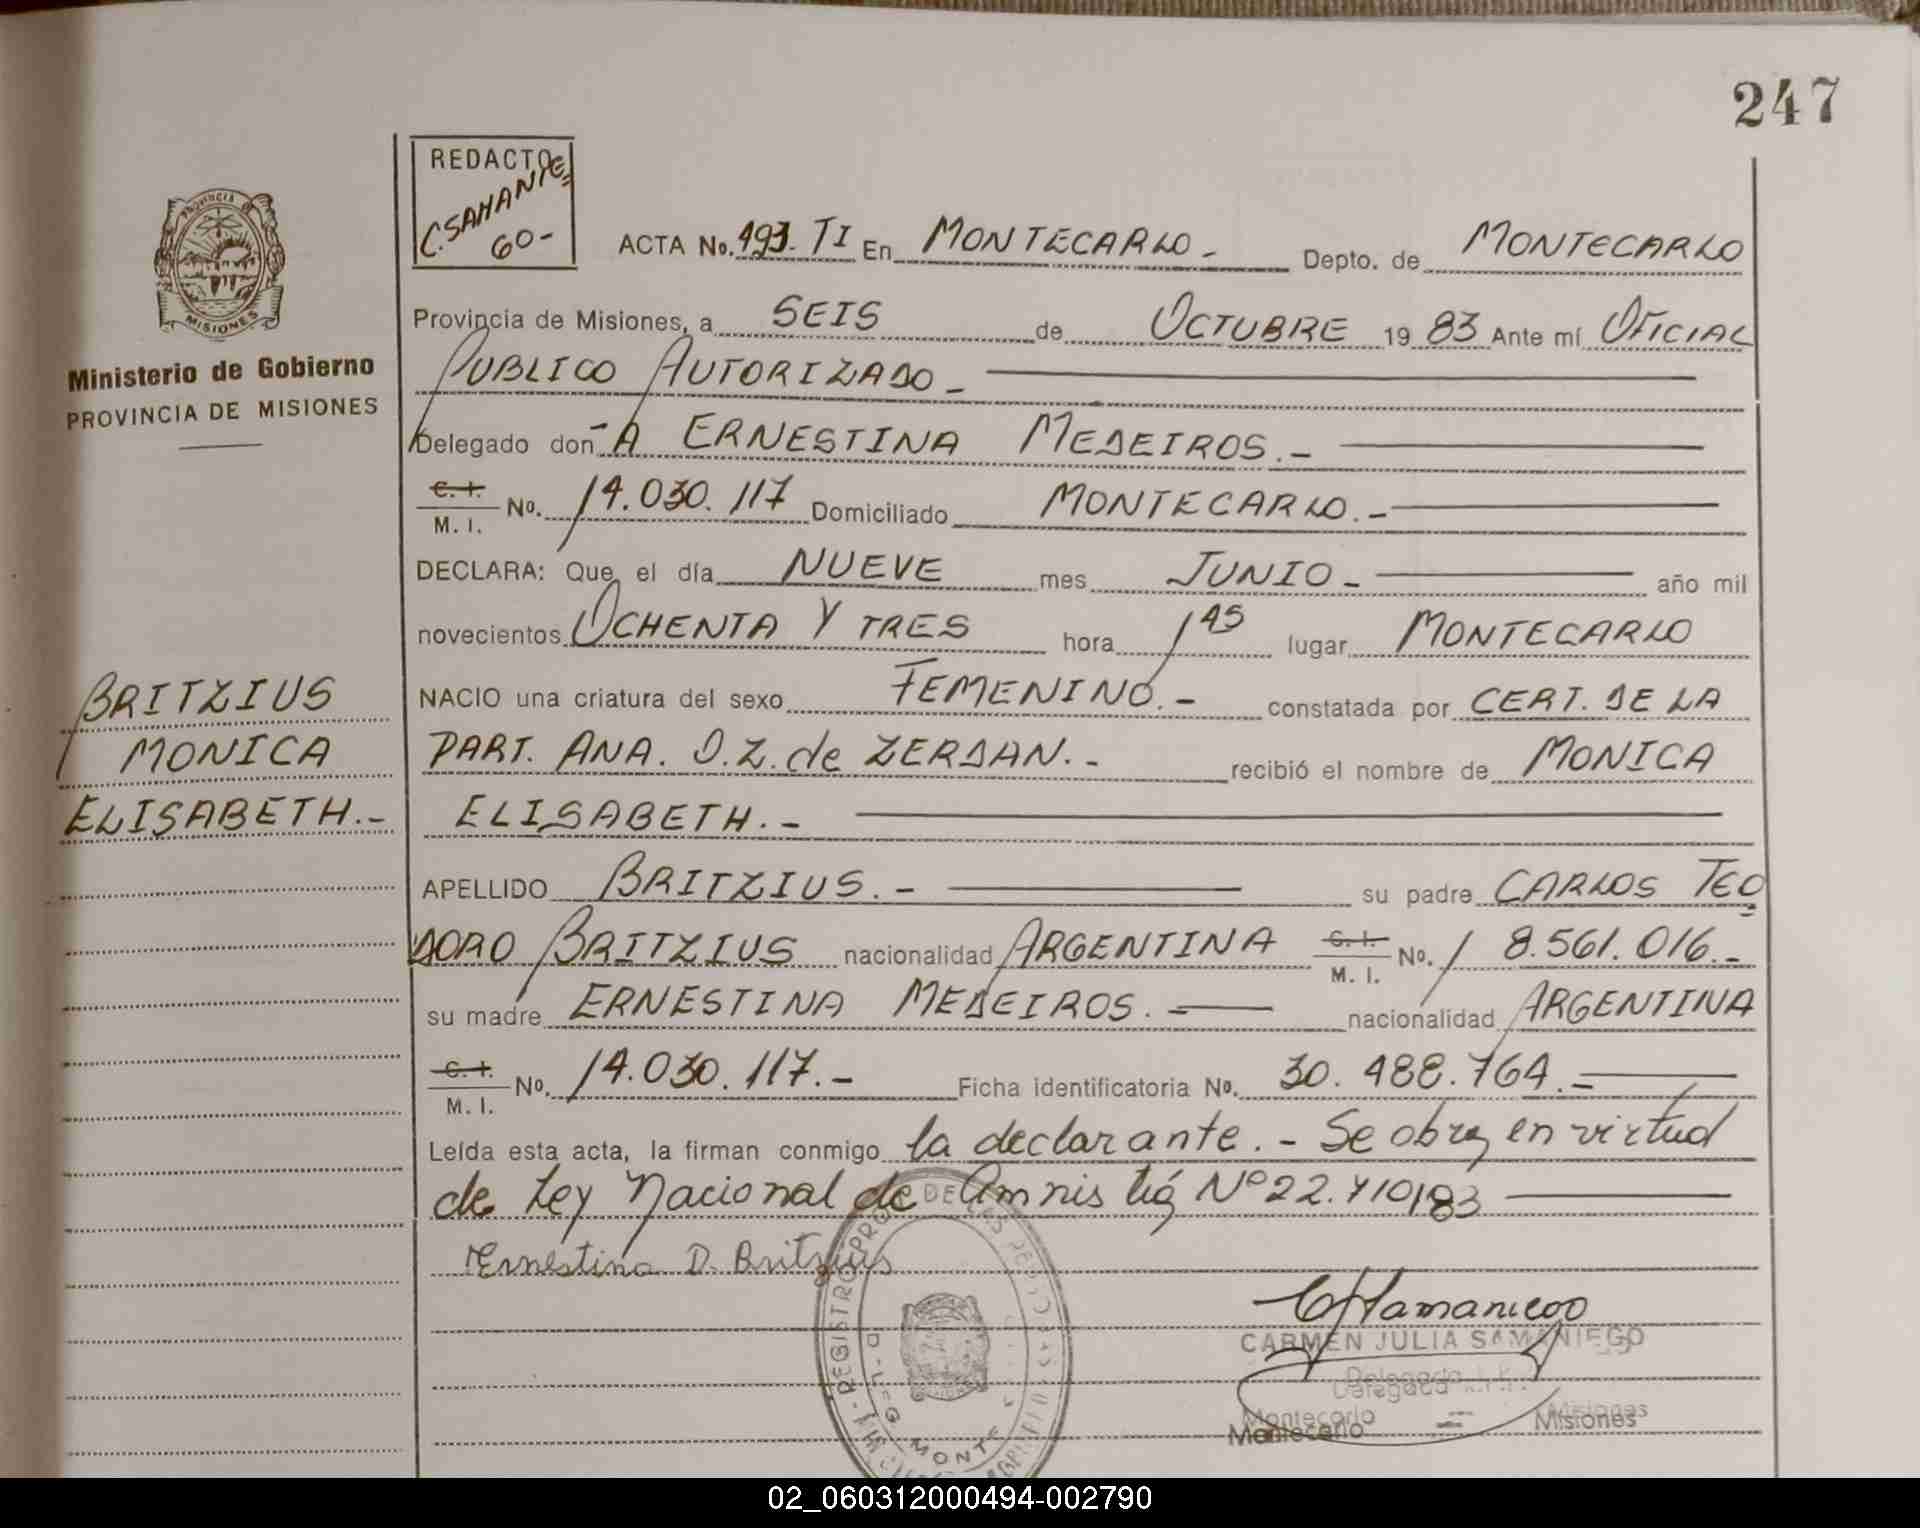 247
REDACTO
60-
PROVINCIA
MISIONES
Ministerio de Gobierno
PROVINCIA DE MISIONES
ACTA No. 493. TI En MONTECARLO - Depto. de MONTECARLO
Provincia de Misiones, a SEIS de OCTUBRE 1983 Ante mí OFICIAL
PUBLICO AUTORIZADO -
Delegado don - A ERNESTINA MEDEIROS.-
C. I.
M. I. No. 14.030.117 Domiciliado MONTECARLO.-
DECLARA: Que el día NUEVE mes JUNIO - año mil
novecientos OCHENTA Y TRES hora 1 45 lugar MONTECARLO
NACIO una criatura del sexo FEMENINO.- constatada por CERT. DE LA
PART. ANA. O.Z. de ZERDAN.- recibió el nombre de MONICA
ELISABETH.-
BRITZIUS
MONICA
ELISABETH.-
APELLIDO BRITZIUS.- su padre CARLOS TEO
DORO BRITZIUS nacionalidad ARGENTINA C. I. M. I. No. 8.561.016.-
su madre ERNESTINA MEDEIROS.- nacionalidad ARGENTINA
C. I.
M. I. No. 14.030.117.- Ficha identificatoria No. 30.488.764.-
Leída esta acta, la firman conmigo la declarante.- Se obra en virtud
de Ley Nacional de Amnistía Nº 22.410/83
Ernestina D. Britzius
CARMEN JULIA SAMANIEGO
Delegada
Montecarlo Misiones
MONTE
02_060312000494-002790